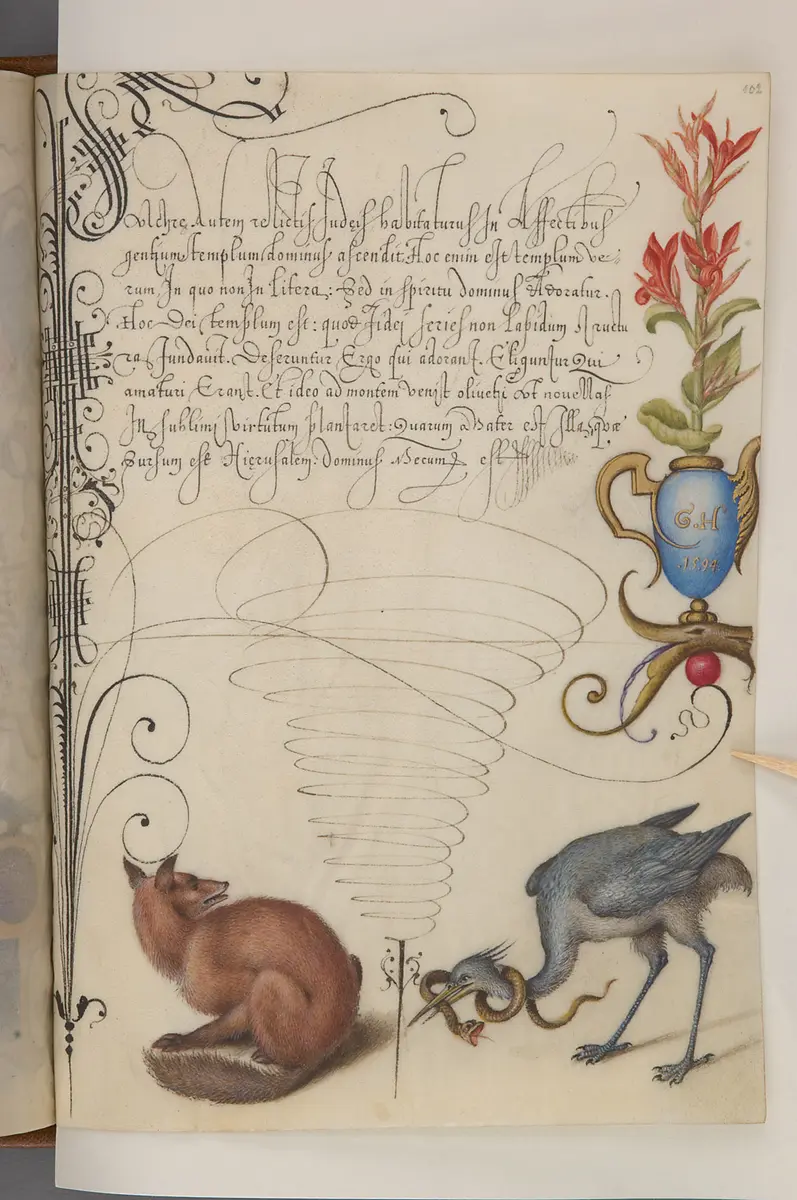 102
Pulchre Autem relictis Judeis habitaturus In Affectibus
gentium templum dominus ascendit. Hoc enim est templum ve-
rum In quo non In litera: Sed in spiritu dominus Adoratur.
Hoc Dei templum est: quod fidei series non lapidum structu
ra fundauit. Deseruntur Ergo qui adorant. Eliguntur Qui
amaturi Erant. Et ideo ad montem venit oliueti Vt nouellas
In sublimi virtutum plantaret: Quarum Mater est Illa, quæ
Sursum est Hierusalem: Dominus Mecum est
G.H
1594